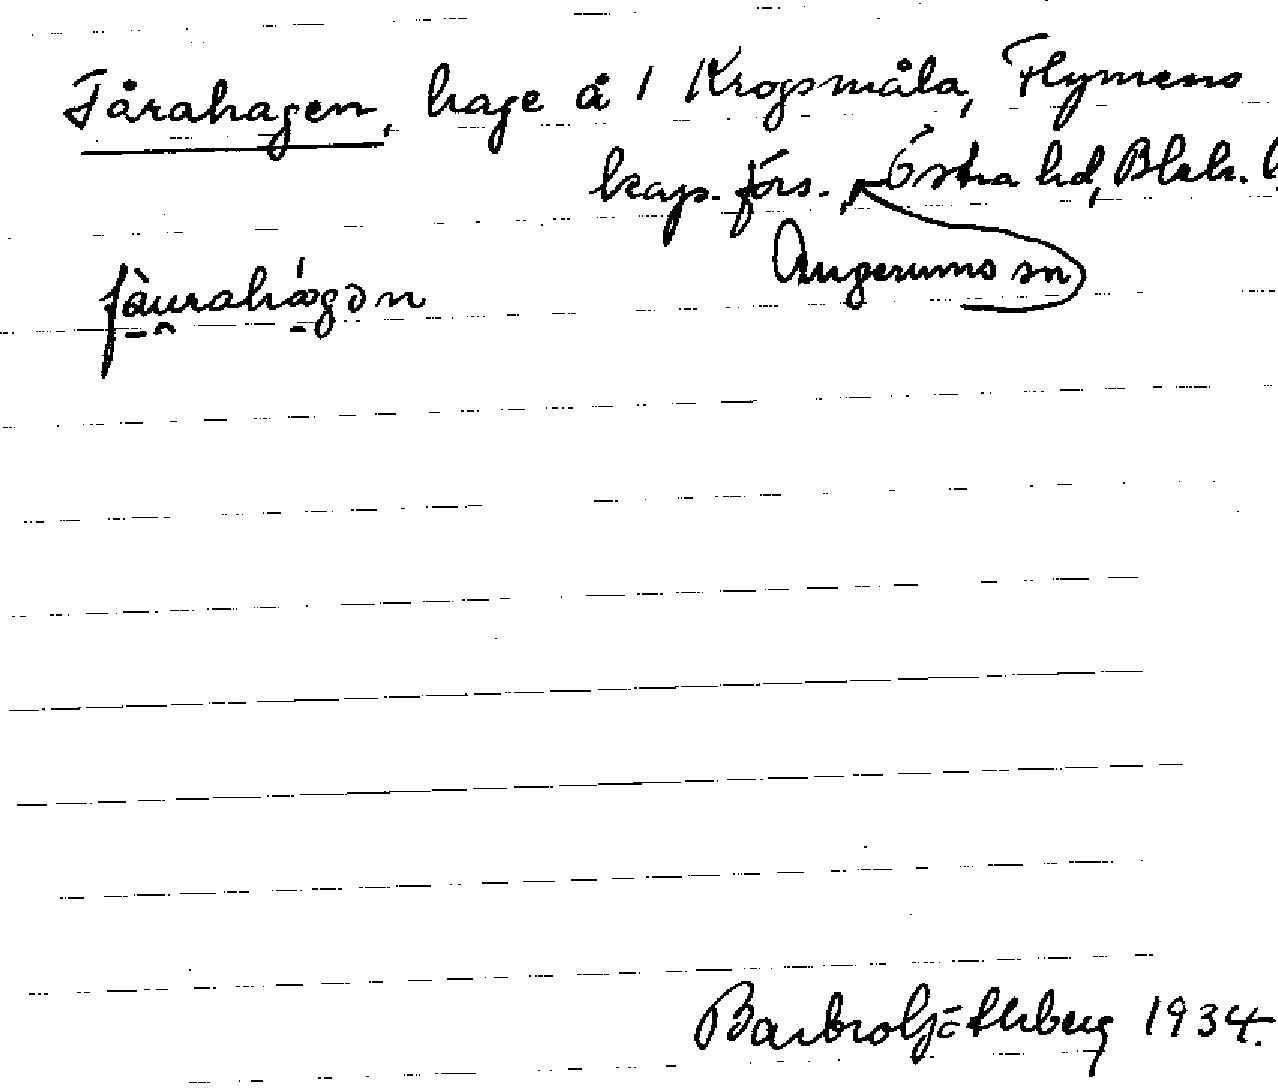 Fårahagen, hage å 1 Krogsmåla, Flymens
kap. förs., Östra hd, Blek. l
Augerums sn
fàurahǿgən
Barbro Götherberg 1934.